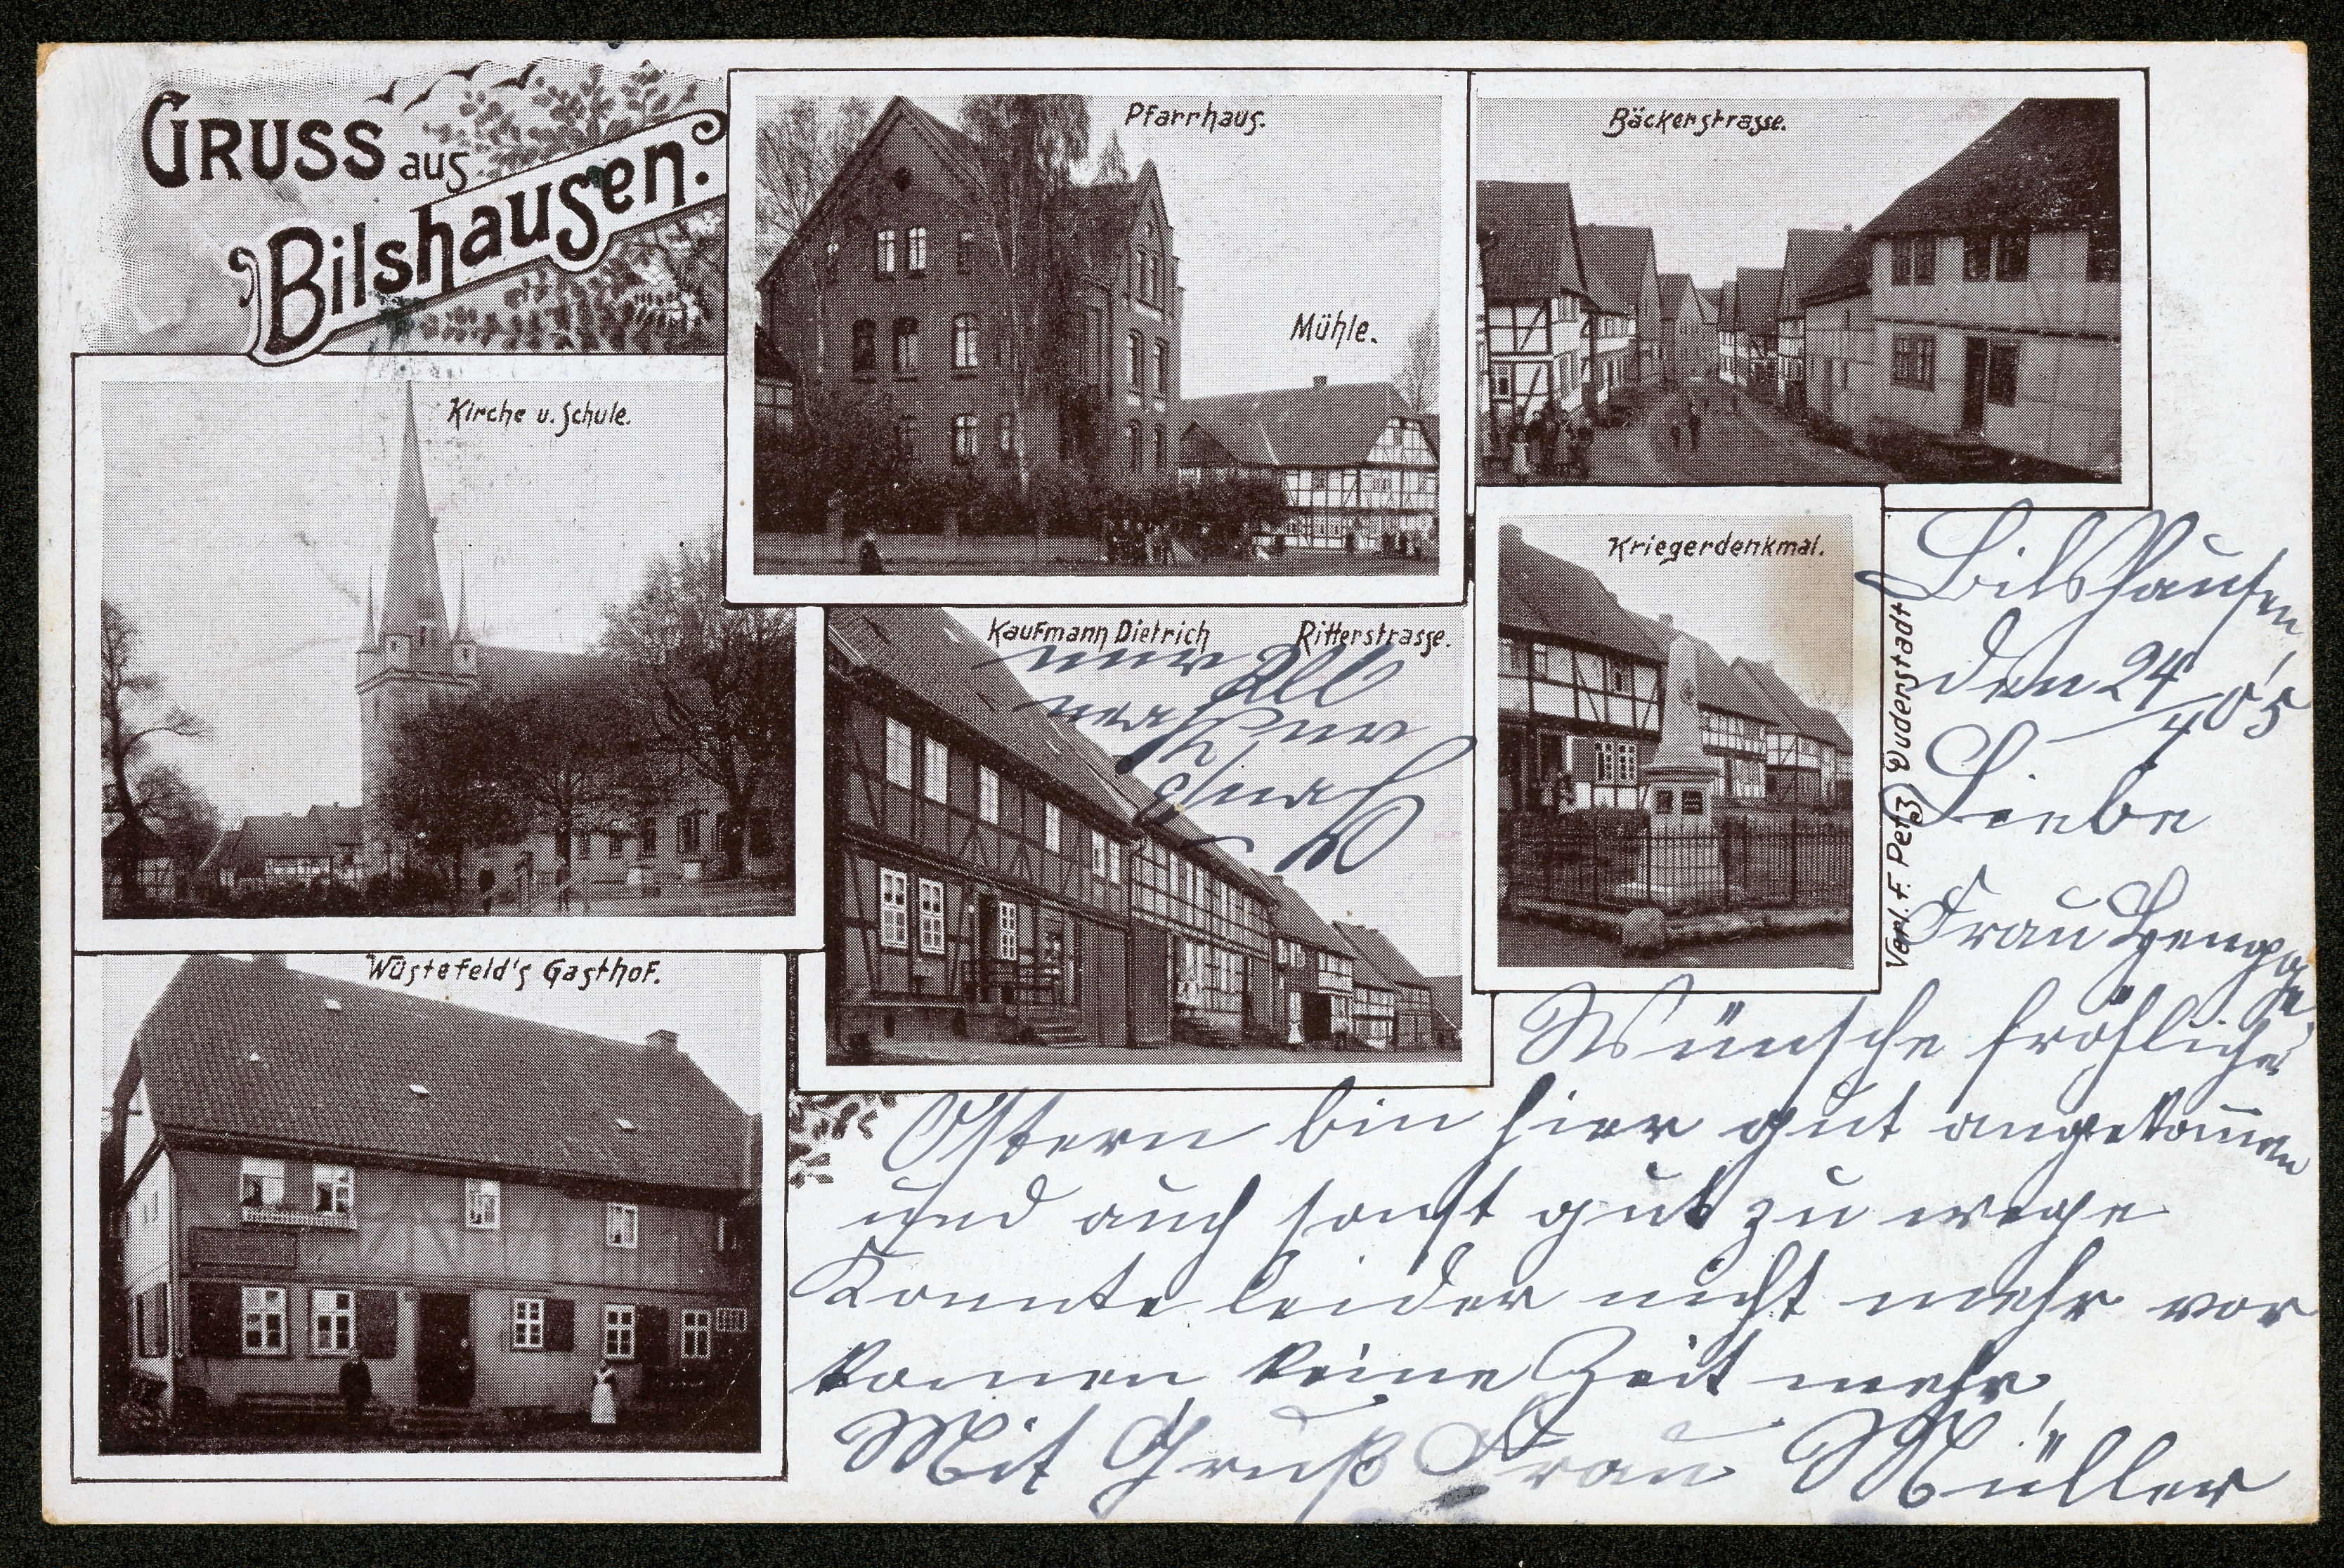 GRUSS aus
Bilshausen.
Pfarrhaus.
Mühle.
Bäckerstrasse.
Kirche u. Schule.
Kaufmann Dietrich Ritterstrasse.
Kriegerdenkmal.
Wüstefeld's Gasthof.
Verl. F. Petz, Duderstadt
Bilshausen,
den 24/4 05
Liebe
Frau
Wünsche fröhliche
Ostern bin hier gut angekom̅en
und auch sonst gut zu wege
Konnte leider nicht mehr vor
kom̅en keine Zeit mehr
Mit Gruß Frau Müller